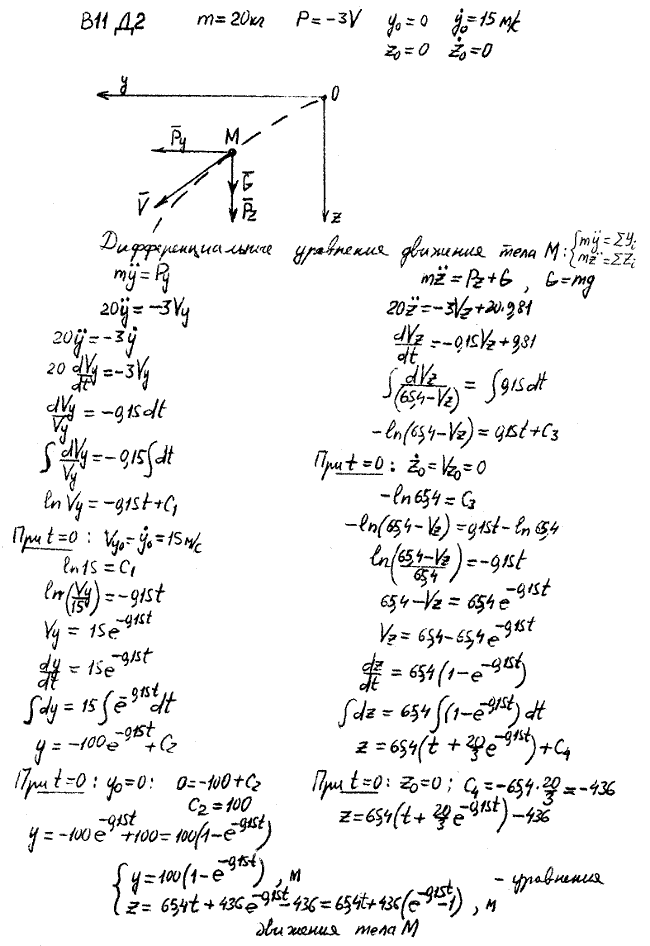 В11 Д2 m=20кг P=-3V y₀=0 ẏ₀=15 м/с
z₀=0 ż₀=0
y O
M
P̄y
Ḡ
V̄ P̄z
z
Дифференциальные уравнения движения тела M: {mÿ=ΣYᵢ
mz̈=ΣZᵢ
mÿ=Py
20ÿ=-3Vy
20ÿ=-3ẏ
20 dVy/dt=-3Vy
dVy/Vy=-0,15dt
∫dVy/Vy=-0,15∫dt
ln Vy=-0,15t+C₁
При t=0: Vy₀=ẏ₀=15м/с
ln15=C₁
ln(Vy/15)=-0,15t
Vy=15e^-0,15t
dy/dt=15e^-0,15t
∫dy=15∫e^-0,15t dt
y=-100e^-0,15t+C₂
При t=0: y₀=0: 0=-100+C₂
C₂=100
y=-100e^-0,15t+100=100(1-e^-0,15t)
mz̈=Pz+G, G=mg
20z̈=-3Vz+20·9,81
dVz/dt=-0,15Vz+9,81
∫dVz/(65,4-Vz)=∫0,15dt
-ln(65,4-Vz)=0,15t+C₃
При t=0: ż₀=Vz₀=0
-ln65,4=C₃
-ln(65,4-Vz)=0,15t-ln65,4
ln(65,4-Vz/65,4)=-0,15t
65,4-Vz=65,4e^-0,15t
Vz=65,4-65,4e^-0,15t
dz/dt=65,4(1-e^-0,15t)
∫dz=65,4∫(1-e^-0,15t)dt
z=65,4(t+20/3e^-0,15t)+C₄
При t=0: z₀=0; C₄=-65,4·20/3=-436
z=65,4(t+20/3e^-0,15t)-436
{y=100(1-e^-0,15t), м - уравнения
z=65,4t+436e^-0,15t-436=65,4t+436(e^-0,15t-1), м
движения тела M